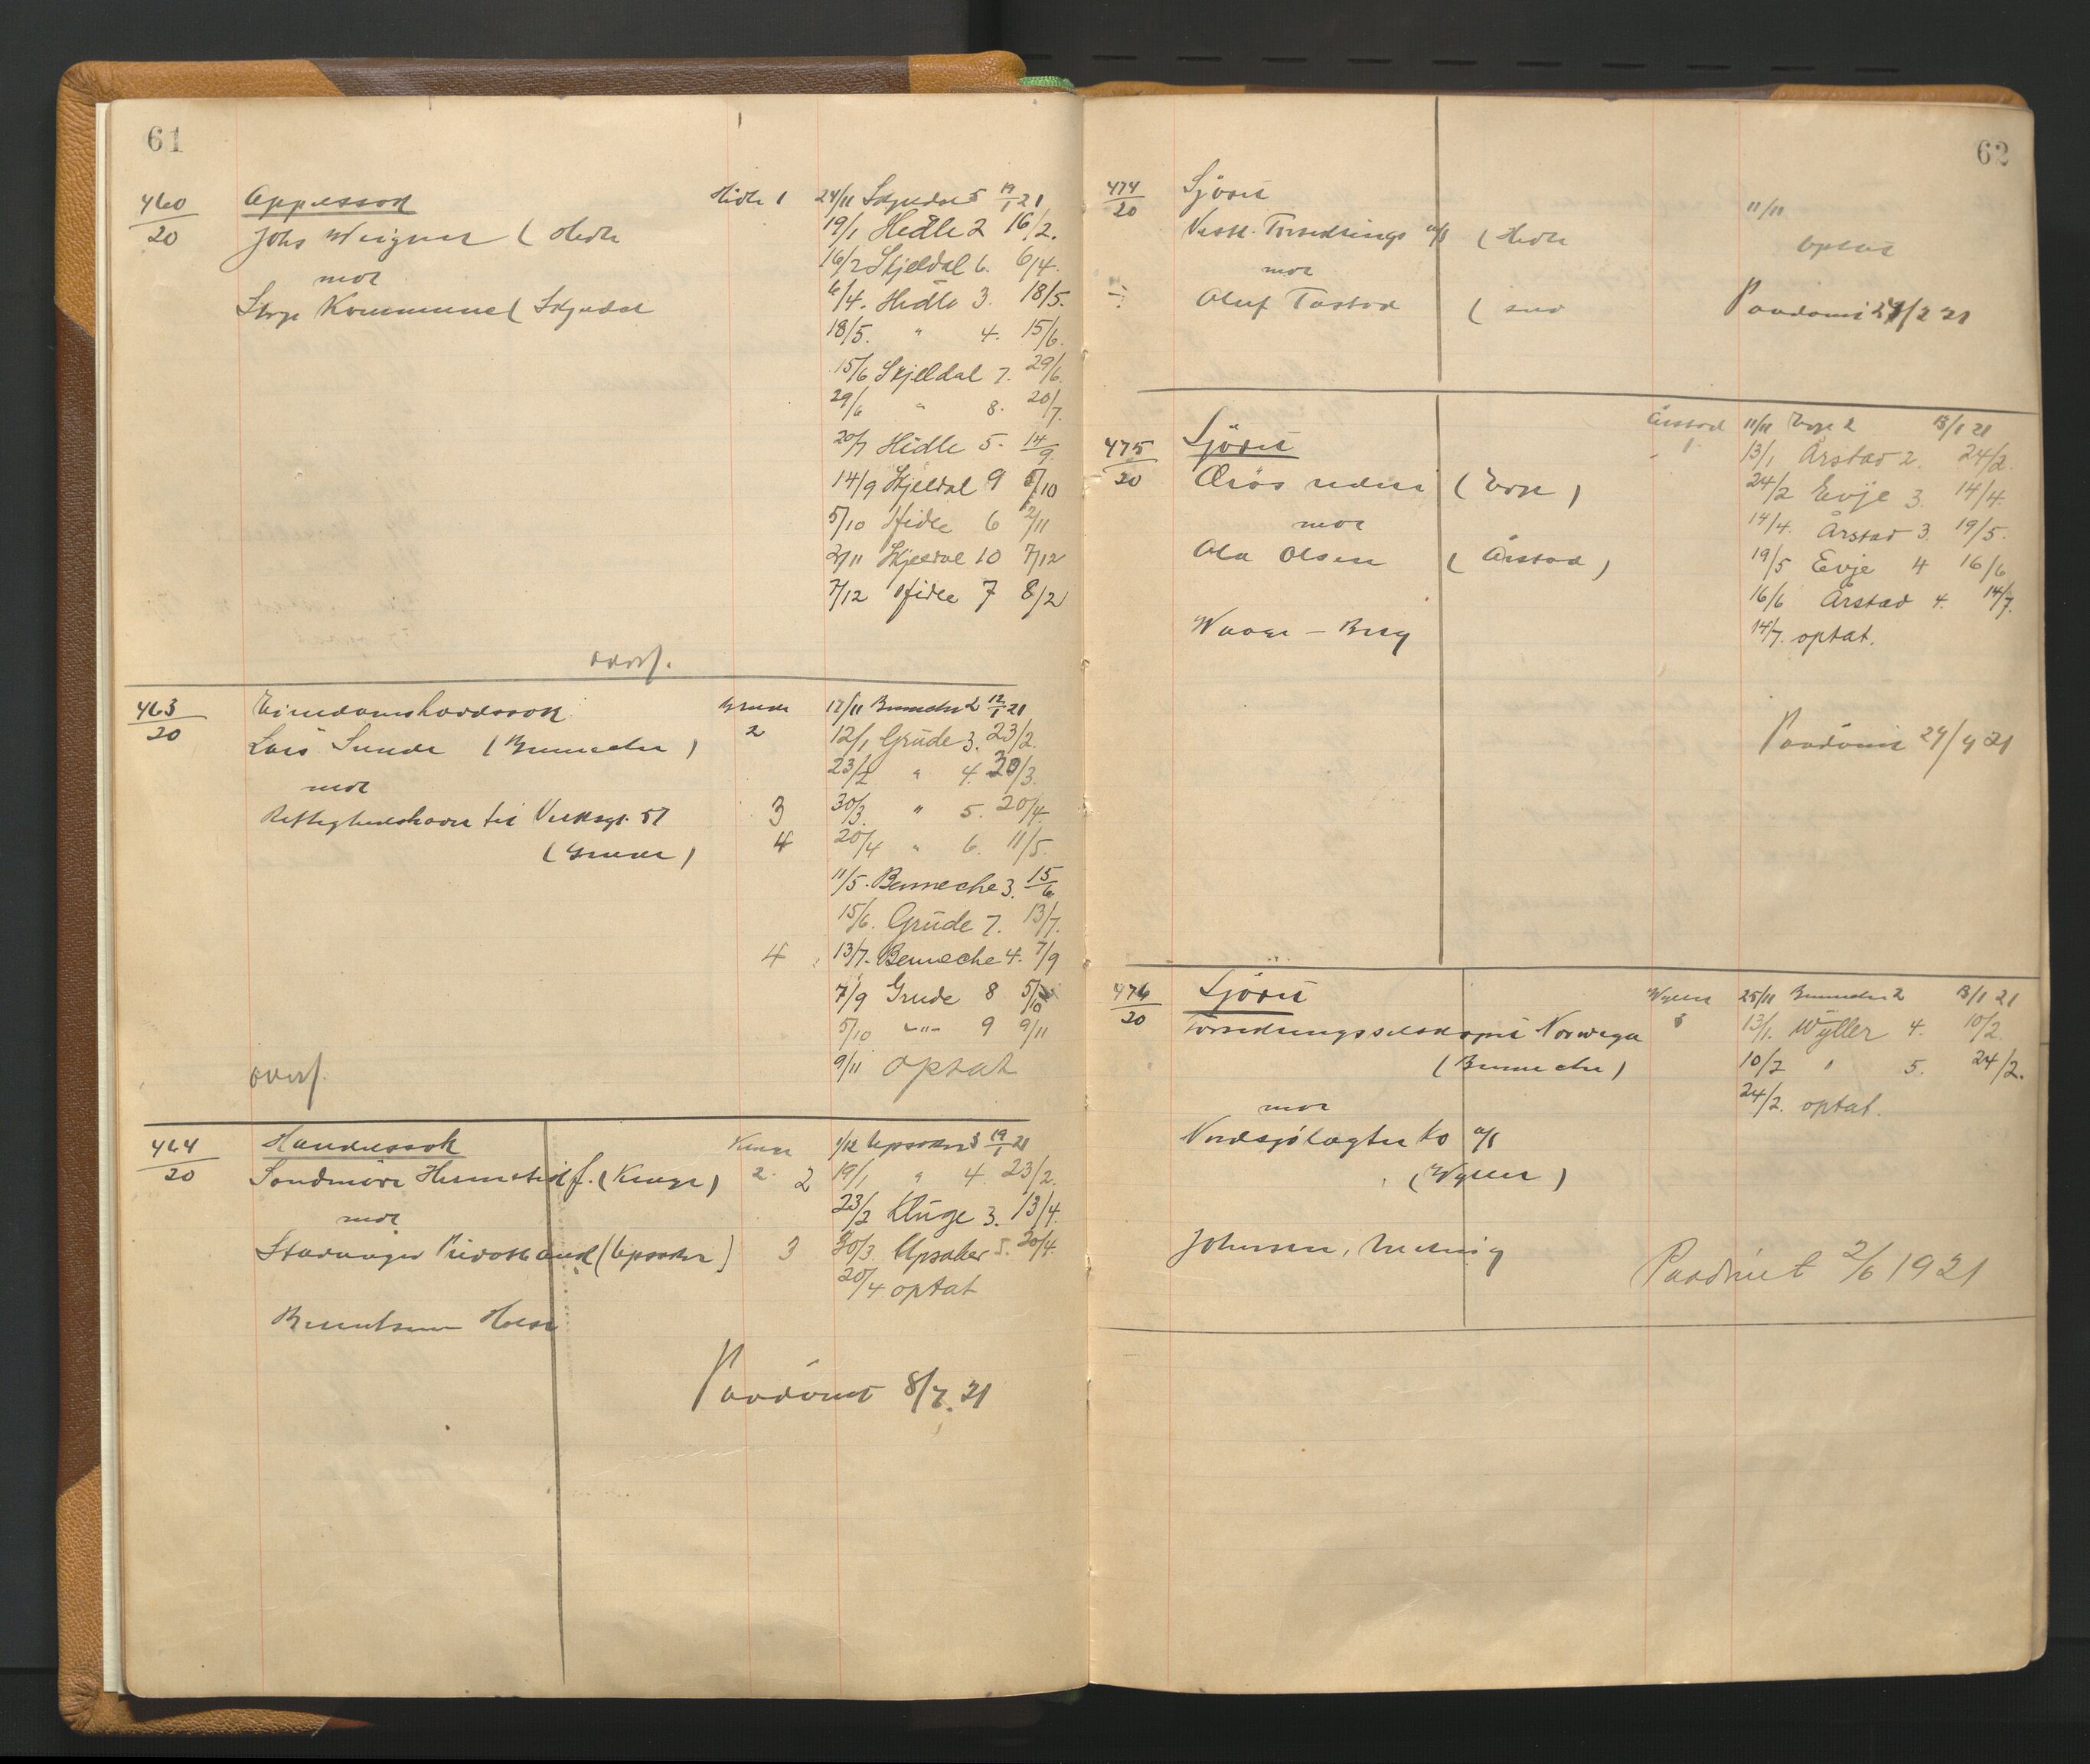 61
460/20 Appelssok Hidle 1 24/11 Skjeldal 5 19/1 21
Johs Weigner ( Hidle 19/1 Hedle 2 16/2.
mot 16/2 Skjeldal 6. 6/4.
Kommune ( Skjeldal 6/4. Hidle 3. 18/5.
18/5. " 4. 15/6.
15/6 Skjeldal 7. 29/6.
29/6 " 8. 20/7.
20/7 Hidle 5. 14/9.
14/9 Skjeldal 9 5/10
5/10 Hidle 6 2/11
2/11 Skjeldal 10 7/12
7/12 Hidle 7 8/2
overf.
463/20 Eiendomshævdssok Grude 2 17/11 Benneche 2 12/1 21
Lars Sunde ( Benneche ) 12/1 Grude 3. 23/2.
mot 23/2 " 4. 30/3.
Rettighedshaver til Verksgt. 57 3 30/3. " 5. 20/4.
( Grude ) 4 20/4 " 6. 11/5.
11/5. Benneche 3. 15/6
15/6. Grude 7. 13/7.
4 13/7. Benneche 4. 7/9
7/9 Grude 8 5/10
5/10 -"- 9 9/11
overf. 9/11 optat
464/20 Handelssok Kluge 2. 1/12 Upsaker 3 19/1 21
Søndmøre Hermetikf. ( Kluge ) 2 19/1 " 4. 23/2.
mot 23/2 Kluge 3. 13/4.
Stavanger Privatbank ( Upsaker ) 3 30/3. Upsaker 5. 20/4.
20/4 optat
Berentsen Holst
Paadømt 8/7. 21
62
474/20 Sjøret 11/11
Vestl. Forsikrings a/s ( Hidle optat
mot
Oluf Tastad ( selv Paadømt 24/2 21
475/20 Sjøret Årstad 1 11/11 Evje 2 13/1 21
rederi ( Evje ) 13/1 Årstad 2. 24/2.
mot 24/2 Evje 3. 14/4.
Ola Olsen ( Årstad ) 14/4. Årstad 3. 19/5.
19/5 Evje 4 16/6
16/6 Årstad 4. 14/7.
Waage - Berg 14/7. optat.
Paadømt 29/9 21
476/20 Sjøret Wyller 25/11 Benneche 2 13/1 21
Forsikringsselskapet Norvegia 13/1. Wyller 4. 10/2.
( Benneche ) 10/2 " 5. 24/2.
mot 24/2. optat.
Nordsjølagter Co a/s
( Wyller )
Johnsen,
Paadømt 2/6 1921